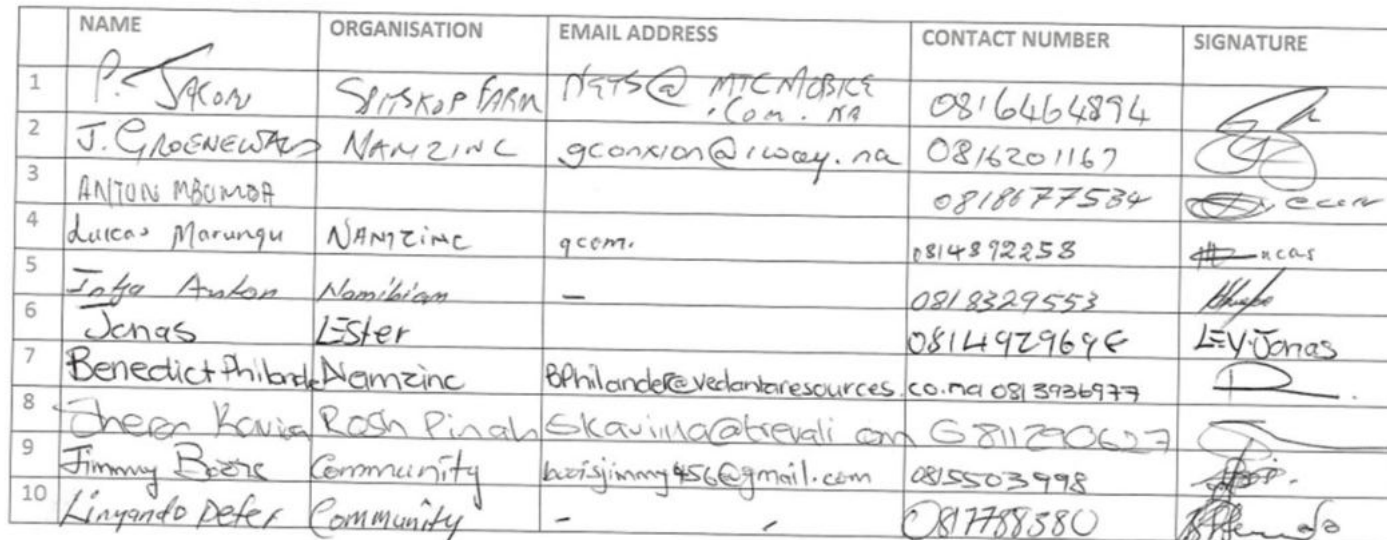 NAME ORGANISATION EMAIL ADDRESS CONTACT NUMBER SIGNATURE
1 P. SPITSKOP FARM MTCMOBILE 0816464894
.Com.NA
2 J. GROENEWALD NAMZINC gconxion@iway.na 0816201167
3 ANTON MBUMBA 0818677534
4 Lukas Marungu NAMZINC gcom. 0814892258
5 Anton Namibian - 0818329553
6 Jonas LEster LEV.Jonas
7 Benedict Philander Namzinc BPhilander@vedantaresources.co.na 0813936977
8 Rosh Pinah
9 Jimmy Community boisjimmy456@gmail.com 0815503998
10 Linyando Peter Community - 0817788580